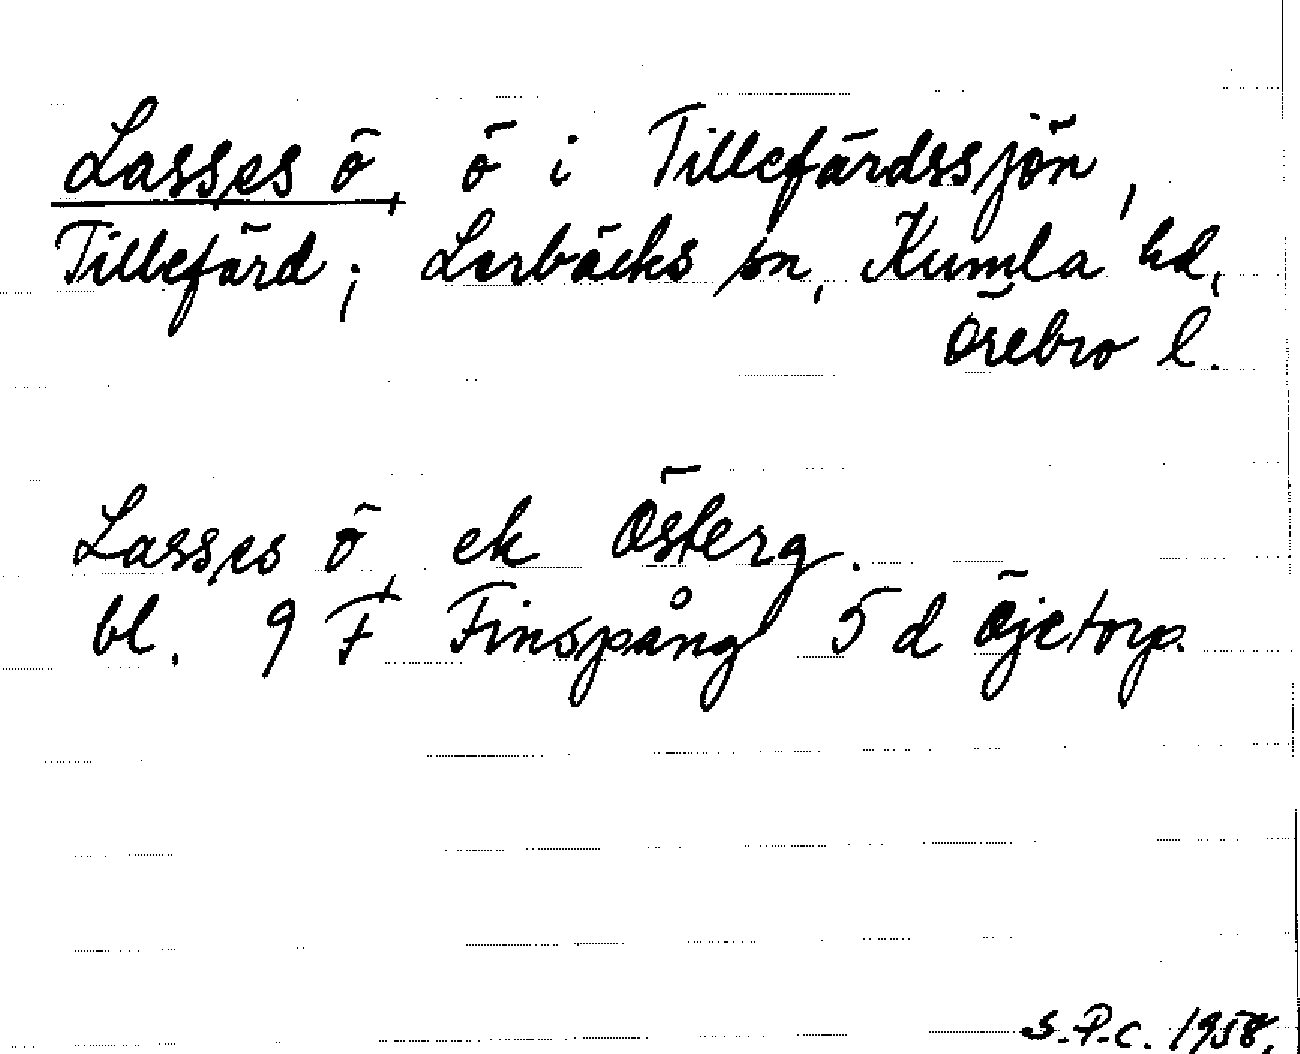 Lasses ö, ö i Tillefärdssjön,
Tillefärd; Lerbäcks sn, Kumla hd,
Örebro l.
Lasses ö, ek Österg.
bl. 9 F Finspång 5 d Öjetorp.
S.P.C. 1958.